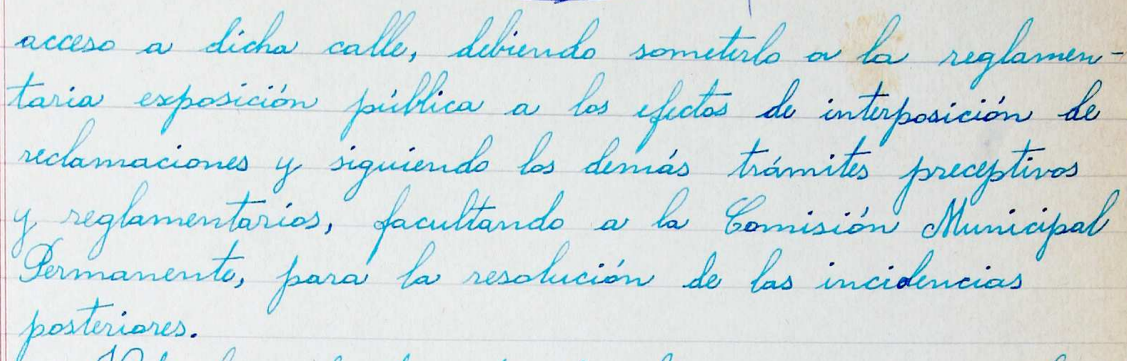 acceso a dicha calle, debiendo someterlo a la reglamen-
taria exposición pública a los efectos de interposición de
reclamaciones y siguiendo los demás trámites preceptivos
y reglamentarios, facultando a la Comisión Municipal
Permanente, para la resolución de las incidencias
posteriores.